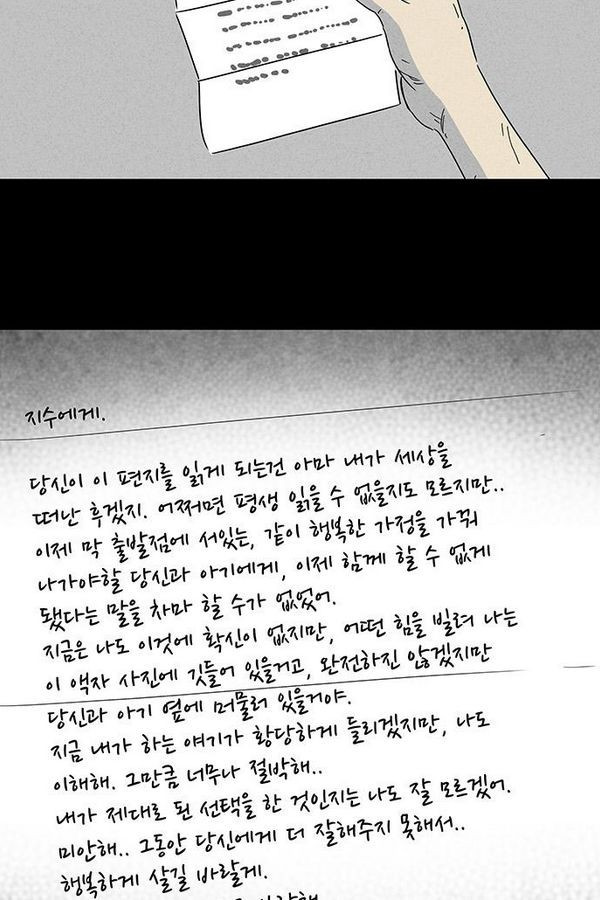 지수에게.
당신이 이 편지를 읽게 되는건 아마 내가 세상을
떠난 후겠지. 어쩌면 평생 읽을 수 없을지도 모르지만..
이제 막 출발점에 서있는, 같이 행복한 가정을 가꿔
나가야할 당신과 아기에게, 이제 함께 할 수 없게
됐다는 말을 차마 할 수가 없었어.
지금은 나도 이것에 확신이 없지만, 어떤 힘을 빌려 나는
이 액자 사진에 깃들어 있을거고, 완전하진 않겠지만
당신과 아기 옆에 머물러 있을거야.
지금 내가 하는 얘기가 황당하게 들리겠지만, 나도
이해해. 그만큼 너무나 절박해..
내가 제대로 된 선택을 한 것인지는 나도 잘 모르겠어.
미안해.. 그동안 당신에게 더 잘해주지 못해서..
행복하게 살길 바랄게.